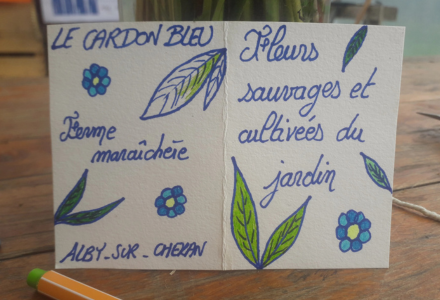 LE CARDON BLEU
Ferme
maraîchère
ALBY-SUR-CHERAN
Fleurs
sauvages et
cultivées du
jardin